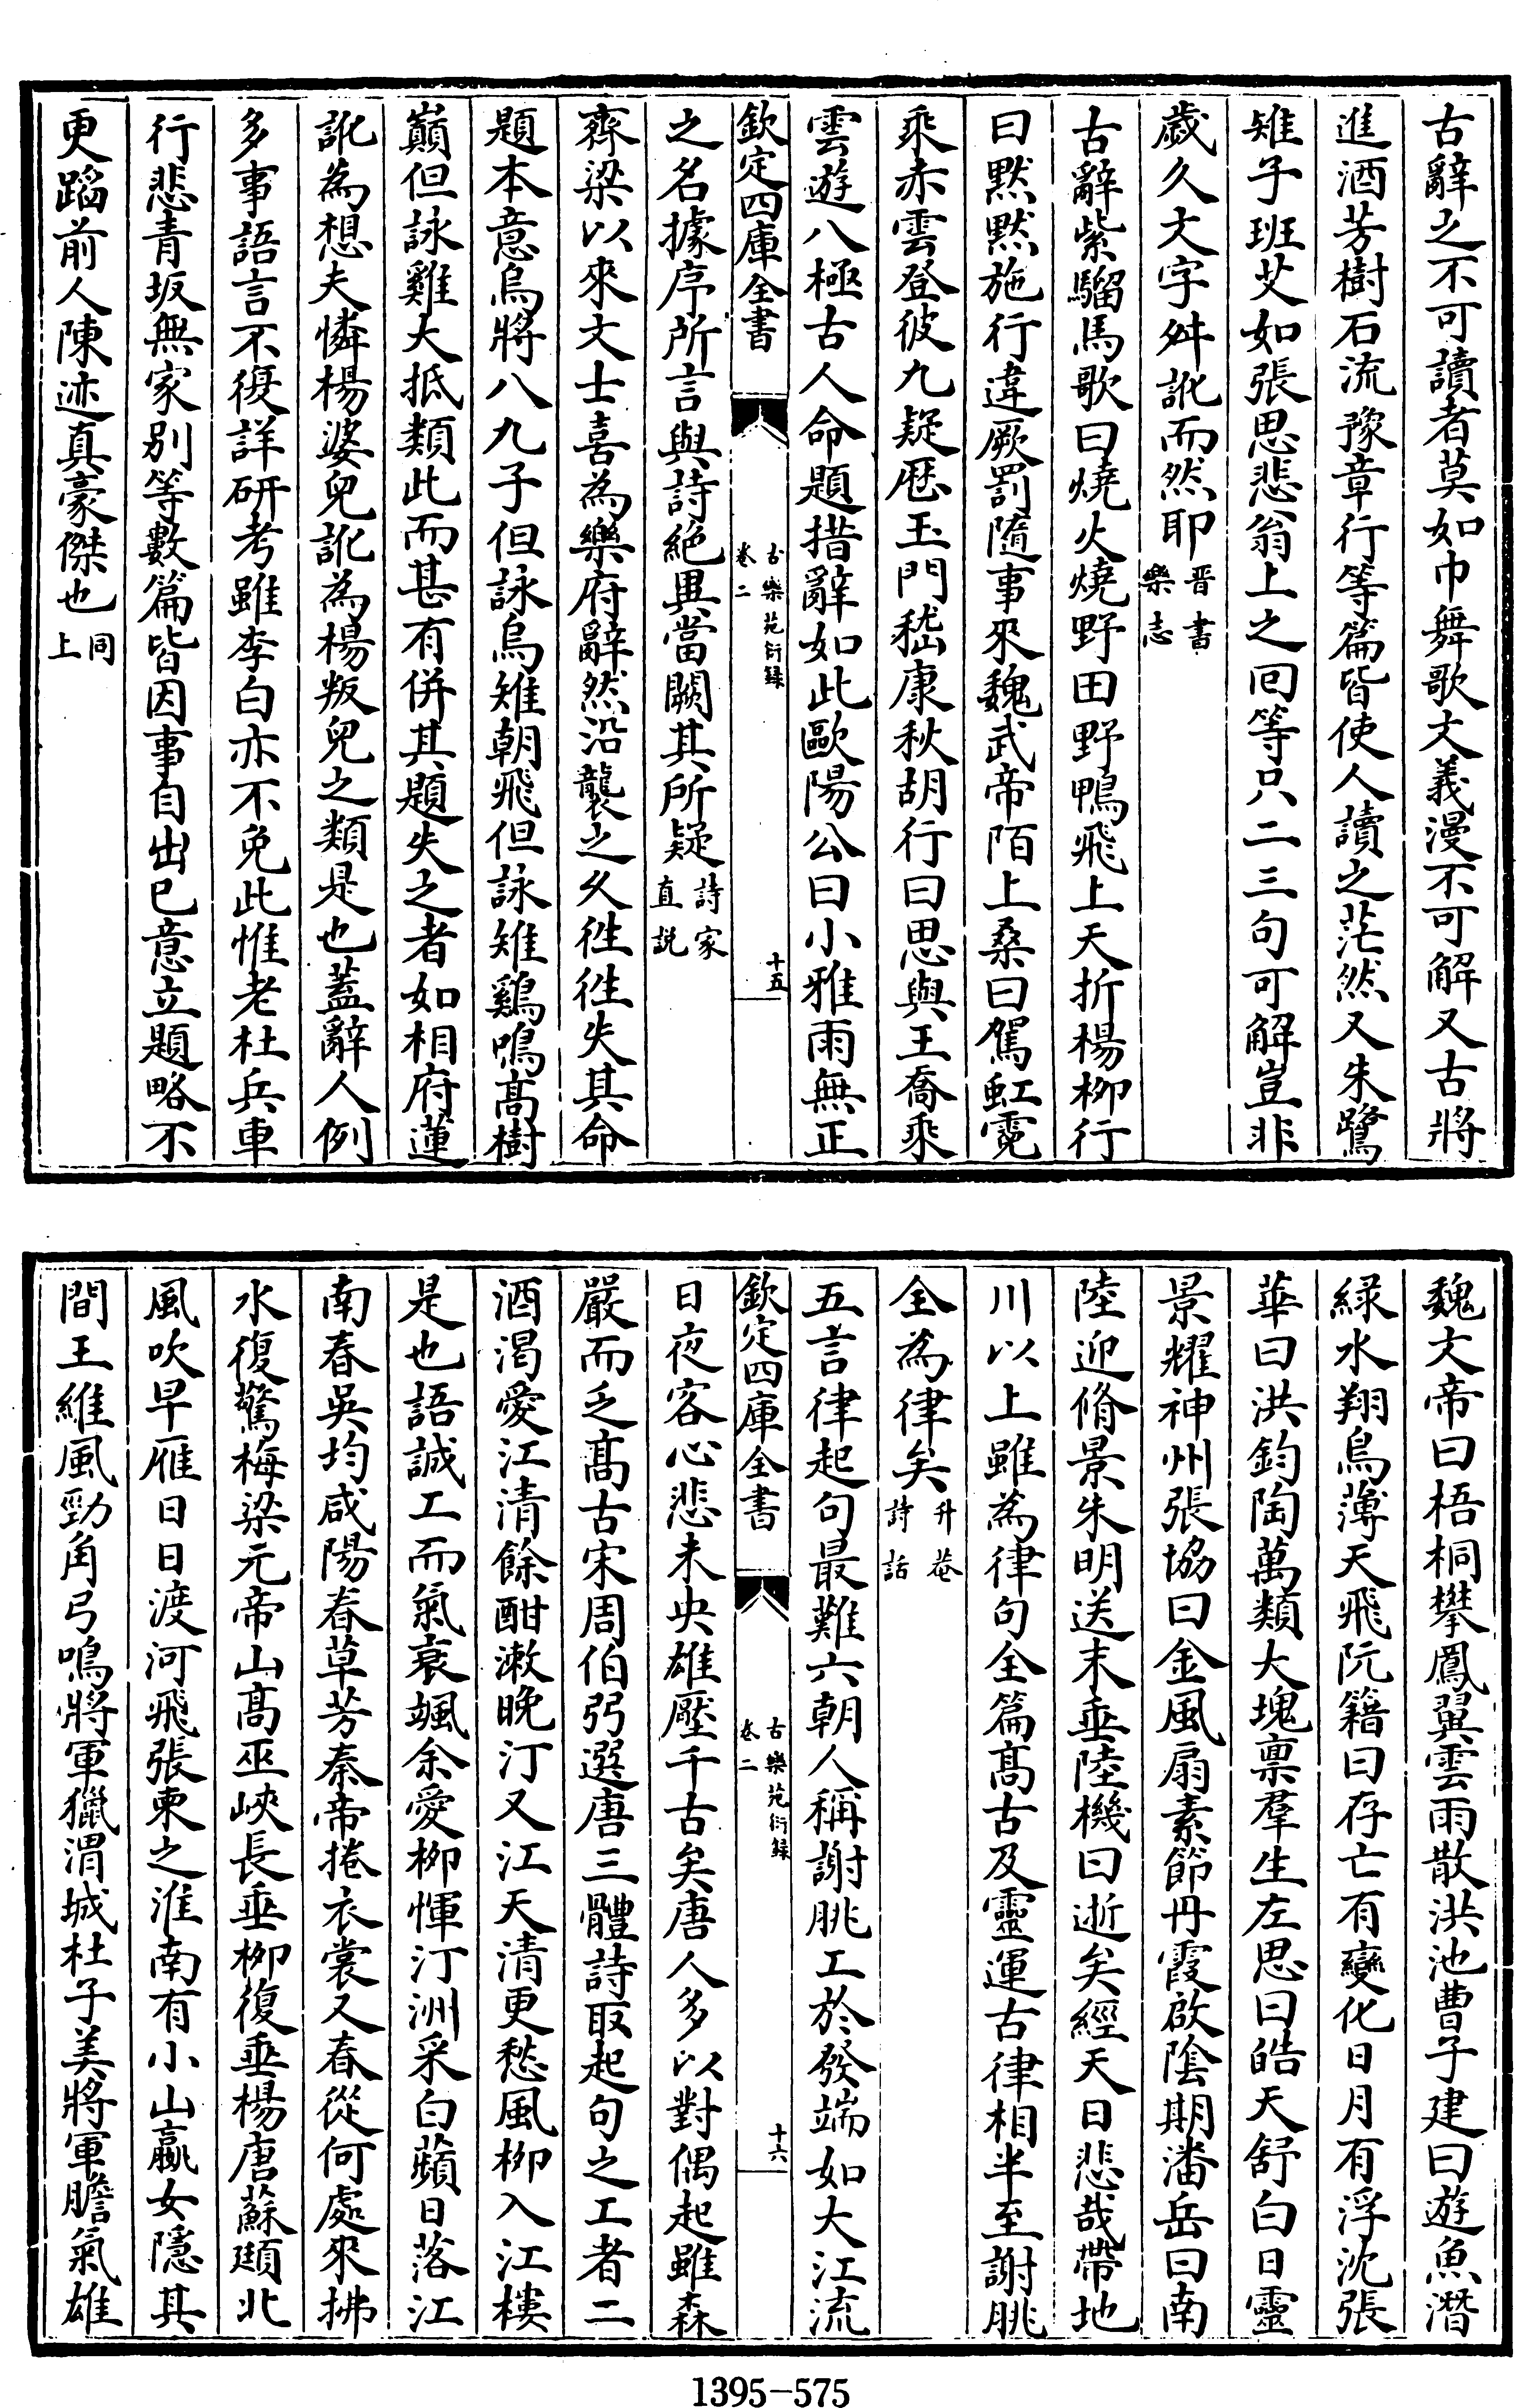 古辭之不可讀者莫如巾舞歌文義漫不可解又古將
進酒芳樹石流豫章行等篇皆使人讀之茫然又朱鷺
雉子班艾如張思悲翁上之囘等只二三句可解豈非
歲久文字舛訛而然耶晋書樂志
古辭紫騮馬歌曰燒火燒野田野鴨飛上天折楊栁行
曰黙黙施行違厥罰隨事來魏武帝陌上桑曰駕虹霓
乘赤雲登彼九疑厯玉門嵇康秋胡行曰思與王喬乘
雲遊八極古人命題措辭如此歐陽公曰小雅雨無正
欽定四庫全書 古樂苑衍録卷二 十五
之名據序所言與詩絶異當闕其所疑詩家直説
齊梁以來文士喜為樂府辭然沿襲之久徃徃失其命
題本意烏將八九子但詠烏雉朝飛但詠雉鷄鳴髙樹
巔但詠雞大抵類此而甚有併其題失之者如相府蓮
訛為想夫憐楊婆兒訛為楊叛兒之類是也蓋辭人例
多事語言不復詳研考雖李白亦不免此惟老杜兵車
行悲青坂無家别等數篇皆因事自出已意立題略不
更蹈前人陳迹真豪傑也同上
魏文帝曰梧桐攀鳳翼雲雨散洪池曹子建曰遊魚潛
緑水翔鳥薄天飛阮籍曰存亡有變化日月有浮沈張
華曰洪鈞陶萬類大塊禀羣生左思曰皓天舒白日靈
景耀神州張協曰金風扇素節丹霞啟陰期潘岳曰南
陸迎脩景朱明送末垂陸機曰逝矣經天日悲哉帶地
川以上雖為律句全篇髙古及靈運古律相半至謝朓
全為律矣升菴詩話
五言律起句最難六朝人稱謝朓工於發端如大江流
欽定四庫全書 古樂苑衍録卷二 十六
日夜客心悲未央雄壓千古矣唐人多以對偶起雖森
嚴而乏髙古宋周伯弜選唐三體詩取起句之工者二
酒渴愛江清餘酣漱晚汀又江天清更愁風栁入江樓
是也語誠工而氣衰颯余愛栁惲汀洲采白蘋日落江
南春吳均咸陽春草芳秦帝捲衣裳又春從何處來拂
水復驚梅梁元帝山髙巫峽長垂栁復垂楊唐蘇頲北
風吹早雁日日渡河飛張柬之淮南有小山嬴女隱其
間王維風勁角弓鳴將軍獵渭城杜子美將軍膽氣雄
1395-575